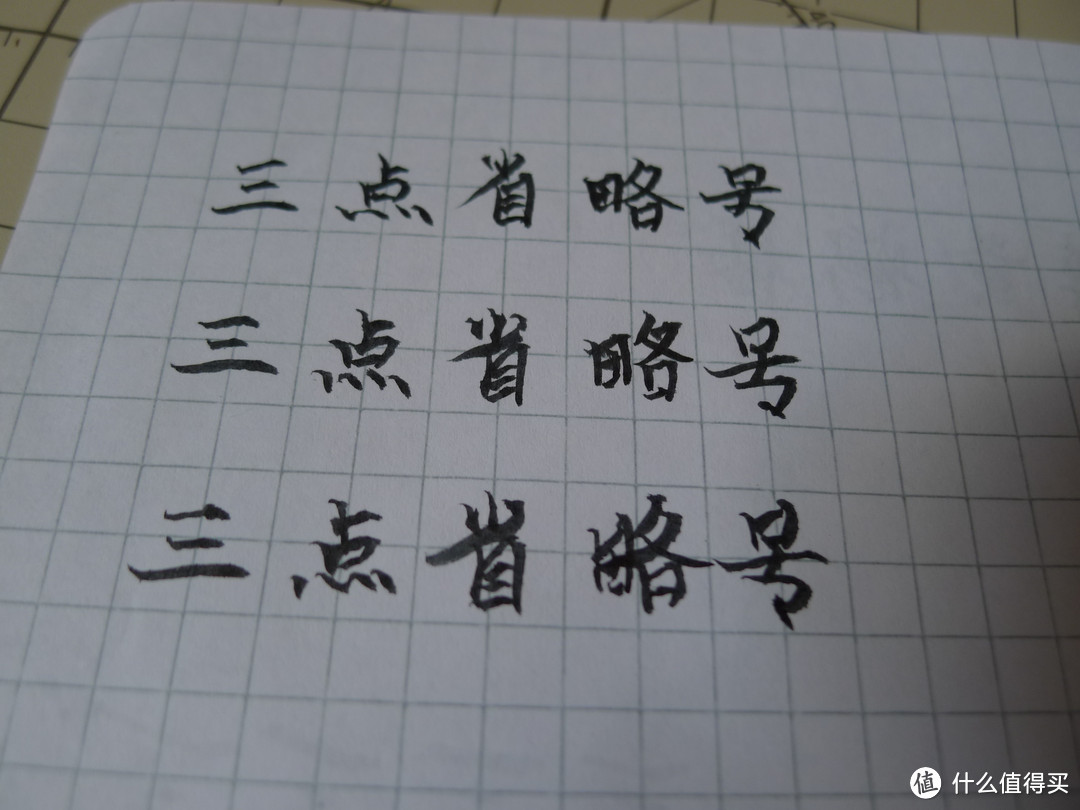 三点省略号
三点省略号
三点省略号
值 什么值得买